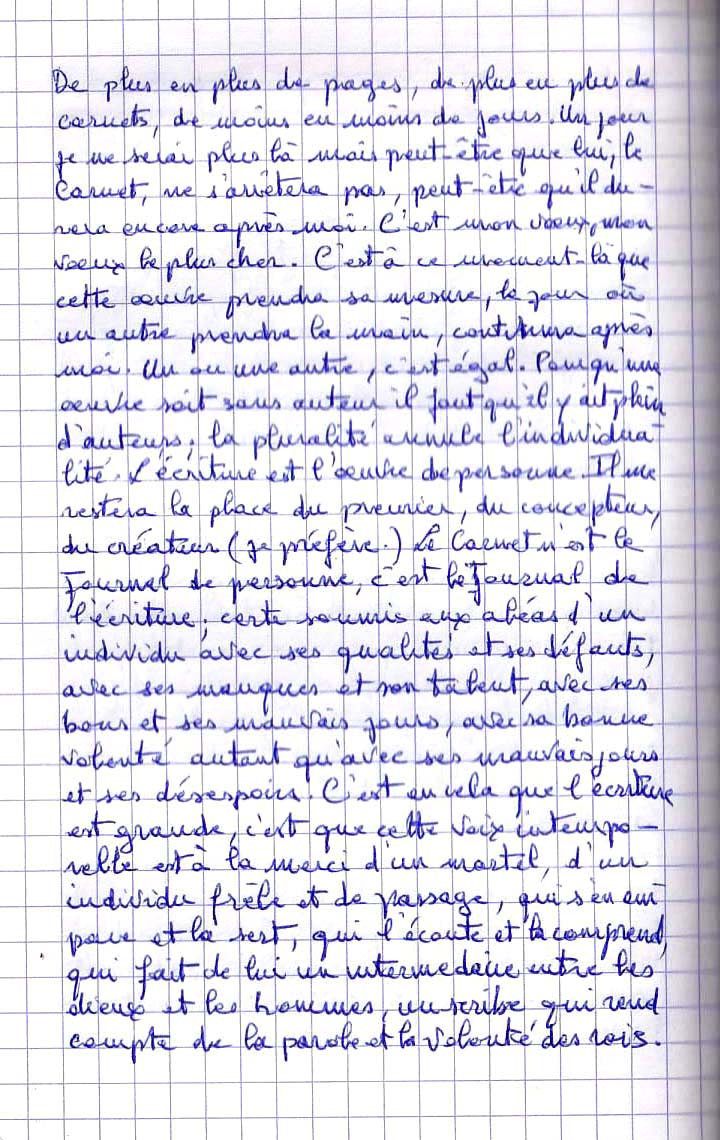 De plus en plus de pages, de plus en plus de
carnets, de moins en moins de jours. Un jour
je ne serai plus là mais peut-être que lui, le
Carnet, ne s'arrêtera pas, peut-être qu'il du-
rera encore après moi. C'est mon voeux, mon
voeux le plus cher. C'est à ce moment-là que
cette oeuvre prendra sa mesure, le jour où
un autre prendra la main, continura après
moi. Un ou une autre, c'est égal. Pour qu'une
oeuvre soit sans auteur il faut qu'il y ait plein
d'auteurs ; la pluralité annule l'individua-
lité. L'écriture est l'oeuvre de personne. Il me
restera la place du premier, du concepteur,
du créateur (je préfère.) Le Carnet n'est le
Journal de personne, c'est le Journal de
l'écriture ; certe soumis aux aléas d'un
individu avec ses qualités et ses défauts,
avec ses manques et son talent, avec ses
bons et ses mauvais jours, avec sa bonne
volonté autant qu'avec ses mauvais jours
et ses désespoirs. C'est en cela que l'écriture
est grande, c'est que cette voix intempo-
relle est à la merci d'un mortel, d'un
individu frêle et de passage, qui s'en em
pare et la sert, qui l'écoute et la comprend,
qui fait de lui un intermedaire entre les
dieux et les hommes, un scribe qui rend
compte de la parole et la volonté des rois.